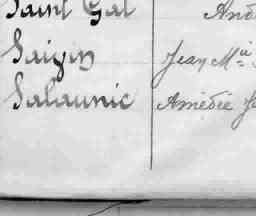 Saint Gal And
Saigin Jean M.ie
Salaunic Amédée J